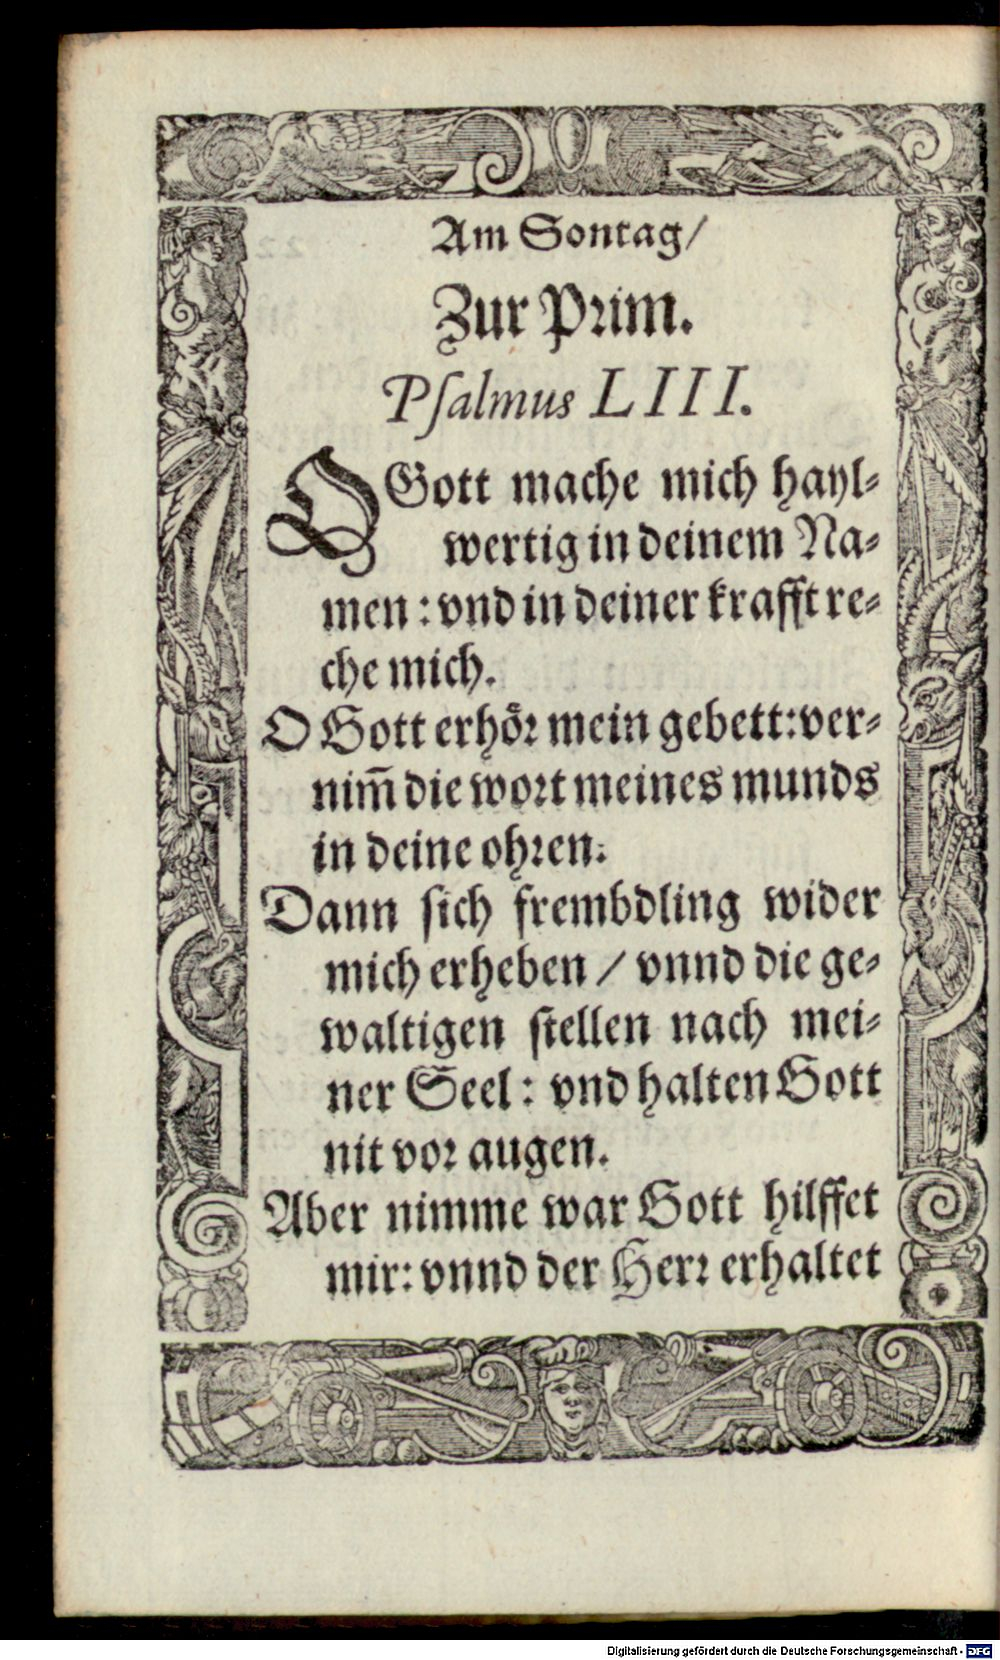 Am Sontag/
Zur Prim.
Psalmus LIII.
O Gott mache mich hayl-
wertig in deinem Na-
men: vnd in deiner krafft re-
che mich.
O Gott erhör mein gebett: ver-
nim̃ die wort meines munds
in deine ohren.
Dann sich frembdling wider
mich erheben / vnnd die ge-
waltigen stellen nach mei-
ner Seel: vnd halten Gott
nit vor augen.
Aber nimme war Gott hilffet
mir: vnnd der Herr erhaltet
Digitalisierung gefördert durch die Deutsche Forschungsgemeinschaft - DFG